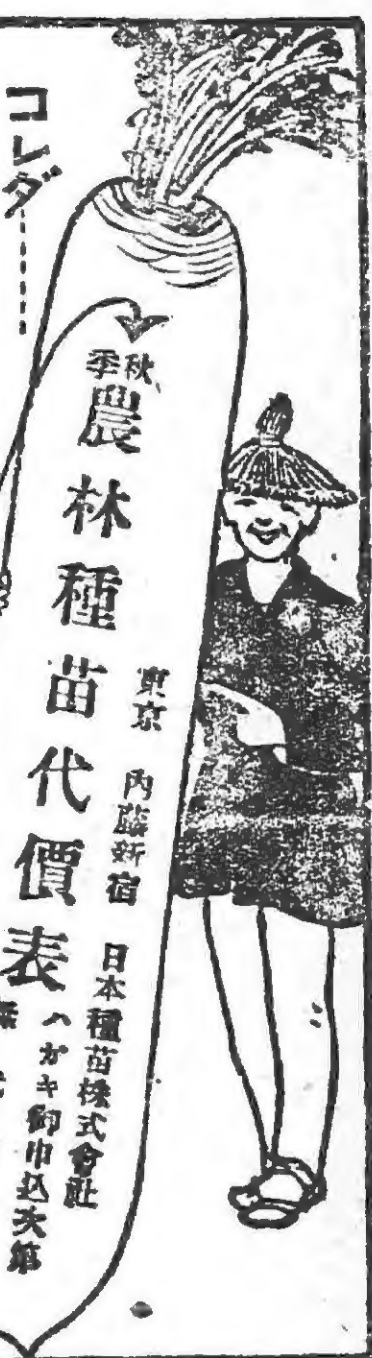 コレダ
秋季
農林種苗代價表
東京 内藤新宿
日本種苗株式會社
ハガキ御申込次第